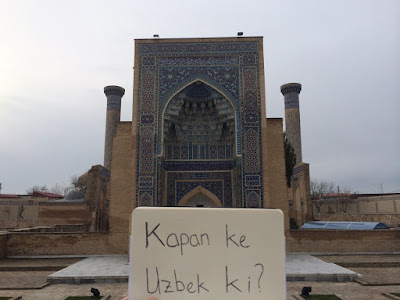 Kapan ke
Uzbek ki?